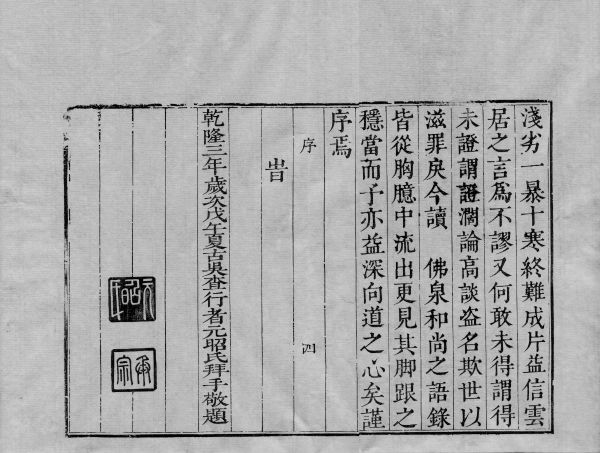 淺劣一暴十寒終難成片益信雲
居之言爲不謬又何敢未得謂得
未證謂證濶論高談盗名欺世以
滋罪戾今讀　佛泉和尚之語錄
皆從胸臆中流出更見其脚跟之
穩當而予亦益深向道之心矣謹
序焉
序　四
旹
乾隆三年歲次戊午夏古吳查行者元昭氏拜手敬題
元昭氏